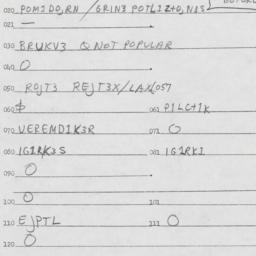 020 POMIDO,RN / GRIN3 POTLIZ+O,NIS
021 —
030 BRUKV3 Q NOT POPULAR
040 O
050 ROJT3 REJT3X/LAX(05?
060 $ 061 PILC+1K
070 VEREMD1K3R 071 O
080 IG1RK3S 081 IG1RKI
090 O
100 O 101
110 EJPTL 111 O
120 O